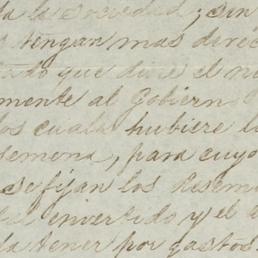 da la sociedad, sin
tengan mas direc
que dure el mi
mente al Gobierno
los cuales hubiere
semena, para cuyo
se fijan los
invertido y el
la tener por gastos